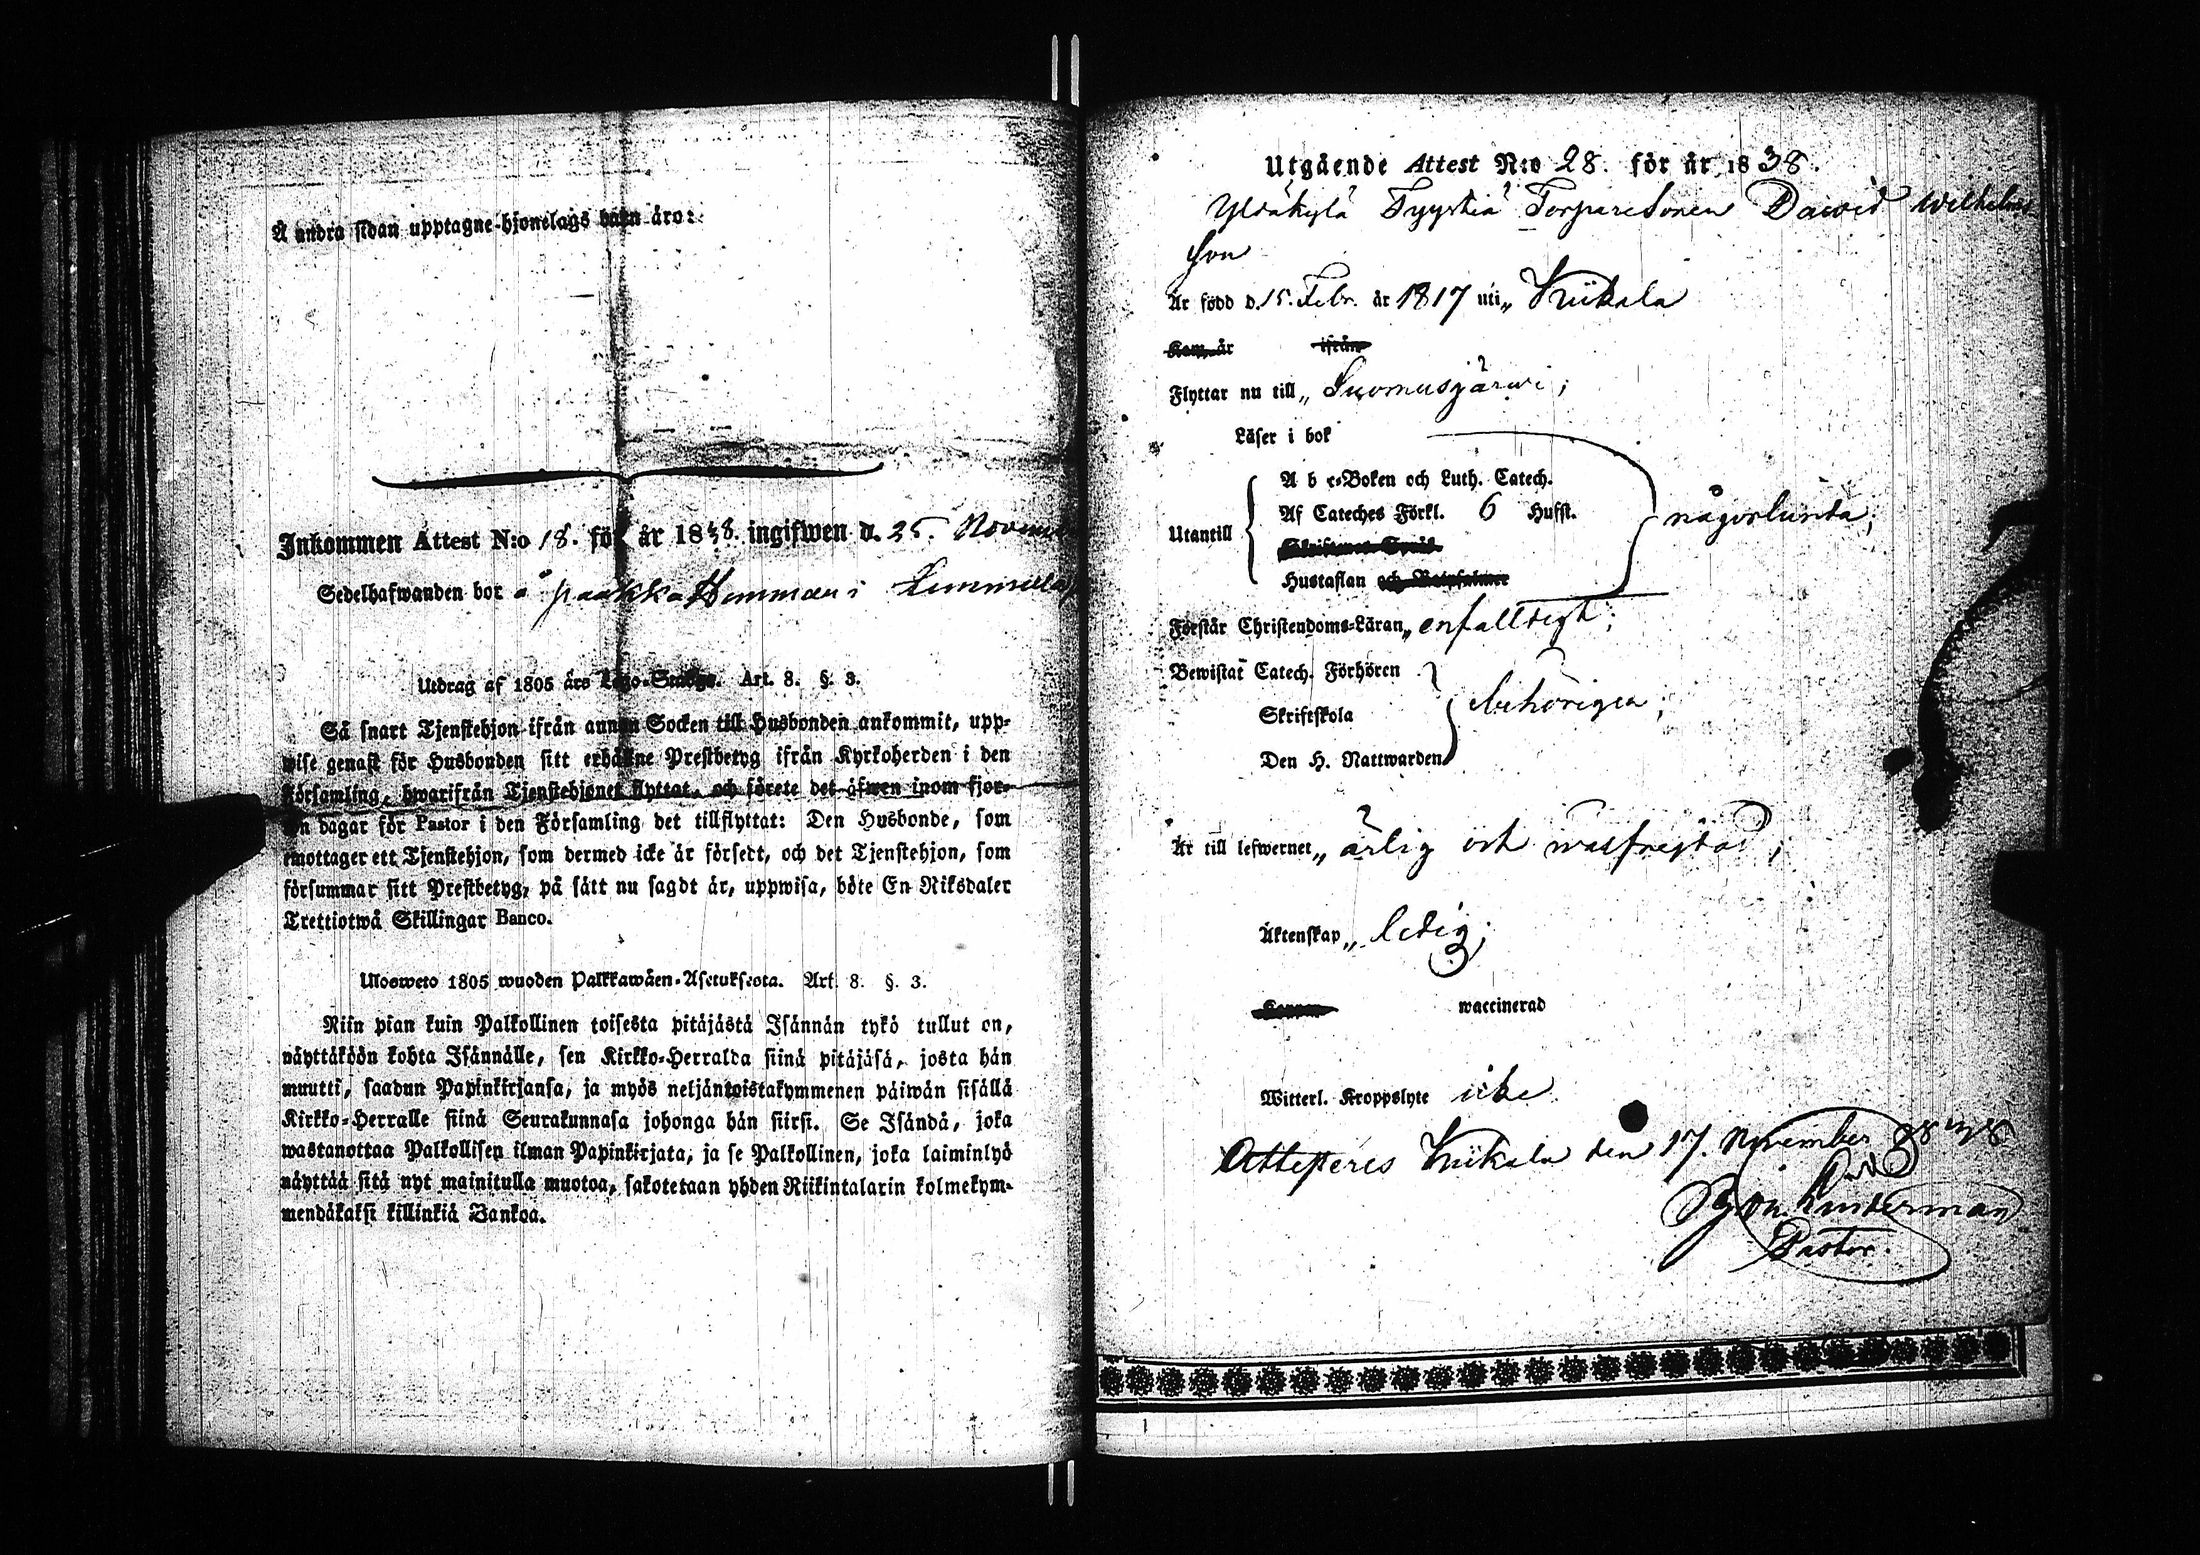 Å andra sidan upptagne hjonelags barn äro:
Inkommen Attest N:o 18. för år 1838. ingifwen d. 25. Novemb
Sedelhafwanden bor å paakka Hemman i
Utdrag af 1805 års Lego-Stadga. Art. 8. §. 3.
Så snart Tjenstehjon ifrån annan Socken till Husbonden ankommit, upp-
wise genast för Husbonden sitt erhållne Prestbetyg ifrån Kyrkoherden i den
Församling, hwarifrån Tjenstehjonet flyttat, och förete det äfwen inom fjor-
ton dagar för Pastor i den Församling det tillflyttat: Den Husbonde, som
emottager ett Tjenstehjon, som dermed icke är försedt, och det Tjenstehjon, som
försummar sitt Prestbetyg, på sätt nu sagdt är, uppwisa, böte En Riksdaler
Trettiotwå Skillingar Banco.
Ulosweto 1805 wuoden Palkkawäen-Asetuksesta. Art. 8. §. 3.
Niin pian kuin Palkollinen toisesta pitäjästä Isännän tykö tullut on,
näyttäköön kohta Isännälle, sen Kirkko-Herralda siinä pitäjäsä, josta hän
muutti, saadun Papinkirjansa, ja myös neljäntoistakymmenen päiwän sisällä
Kirkko-Herralle siinä Seurakunnasa johonga hän siirsi. Se Isändä, joka
wastanottaa Palkollisen ilman Papinkirjata, ja se Palkollinen, joka laiminlyö
näyttää sitä nyt mainitulla muotoa, sakotetaan yhden Riikintalarin kolmekym-
mendäkaksi killinkiä Bankoa.
Utgående Attest N:o 28. för år 1838.
Yldäkylä Tyystiä Torparesonen Dawid Wilhelms
Son
Är född d. 15. Febr. år 1817 uti „ Kiikala
Kom år ifrån
Flyttar nu till „ Suomusjärwi;
Läser i bok
A b c-Boken och Luth. Catech.
Af Cateches Förkl. 6 Hufst.
någorlunda;
Utantill
Hustaflan och
Förstår Christendoms-Läran „ enfalldigt;
Bewistat Catech. Förhören
Skriftskola
behörigen;
Den H. Nattwarden
Är till lefwernet „ ärlig och wälfrejdad;
Äktenskap „ ledig;
Koppor waccinerad
Witterl. Kroppslyte icke
Attesteres Kiikala den 17. November 1838
Linderman
Pastor.